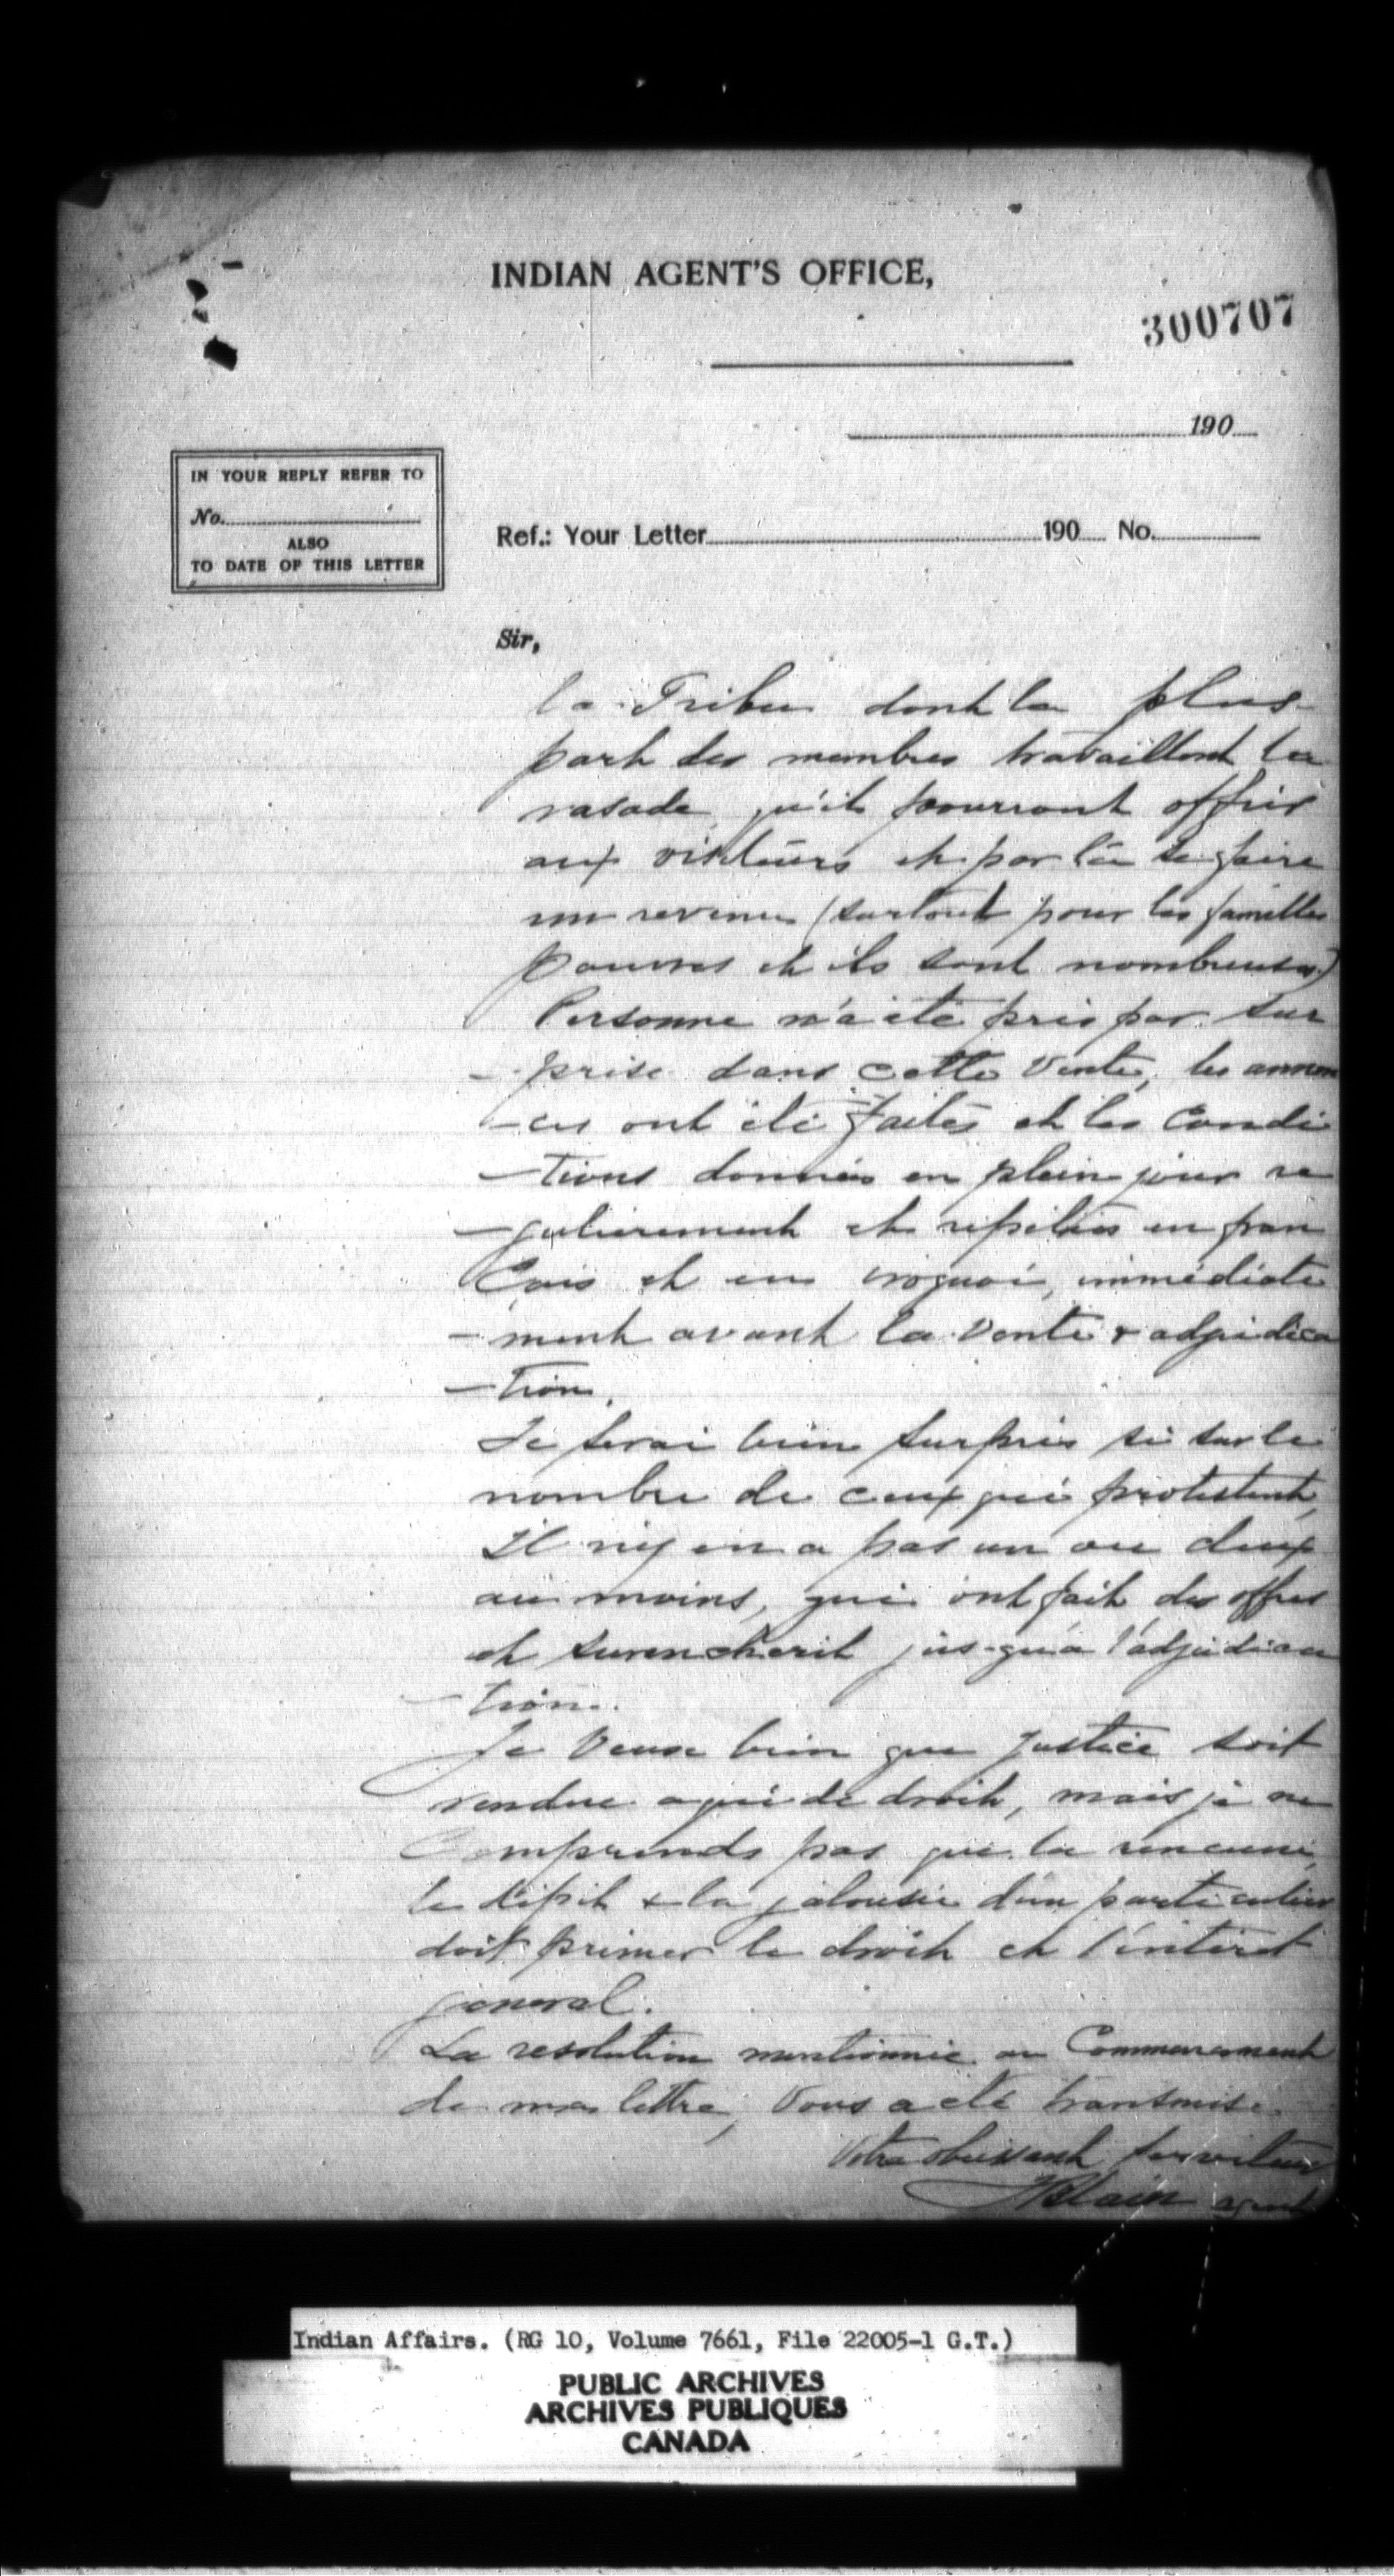 INDIAN AGENT'S OFFICE,
300707
190
IN YOUR REPLY REFER TO
No.
ALSO
TO DATE OF THIS LETTER
Ref.: Your Letter 190 No.
Sir,
la Tribu dont la plus-
part des membres travaillent la
rasade, qu'ils pourront offrir
aux visiteurs et par là se faire
un revenu (surtout pour les familles
pauvres et ils sont nombreuses)
Personne n'a été pris par sur
-prise dans cette vente, les annon
-ces ont été faites et les condi
-tions données en plein jour re
-gulierement et repetées en fran
çais et en iroquois, immédiate
-ment avant la vente & adjudica
-tion.
Je serai bien surpris si sur le
nombre de ceux qui protestent,
il n'y en a pas un ou deux
au moins, qui ont fait des offres
et surencherit jus-qu'a l'adjudica
-tion.
Je veux bien que justice soit
rendue a qui de droit, mais je ne
comprends pas que la rancune,
le dépit & la jalousie d'un particulier
doit primer le droit et l'intéret
general.
La resolution mentionnée au Commencement
de ma lettre, vous a été transmise.
Votre obeissant serviteur
Blain agent
Indian Affairs. (RG 10, Volume 7661, File 22005-1 G.T.)
PUBLIC ARCHIVES
ARCHIVES PUBLIQUES
CANADA